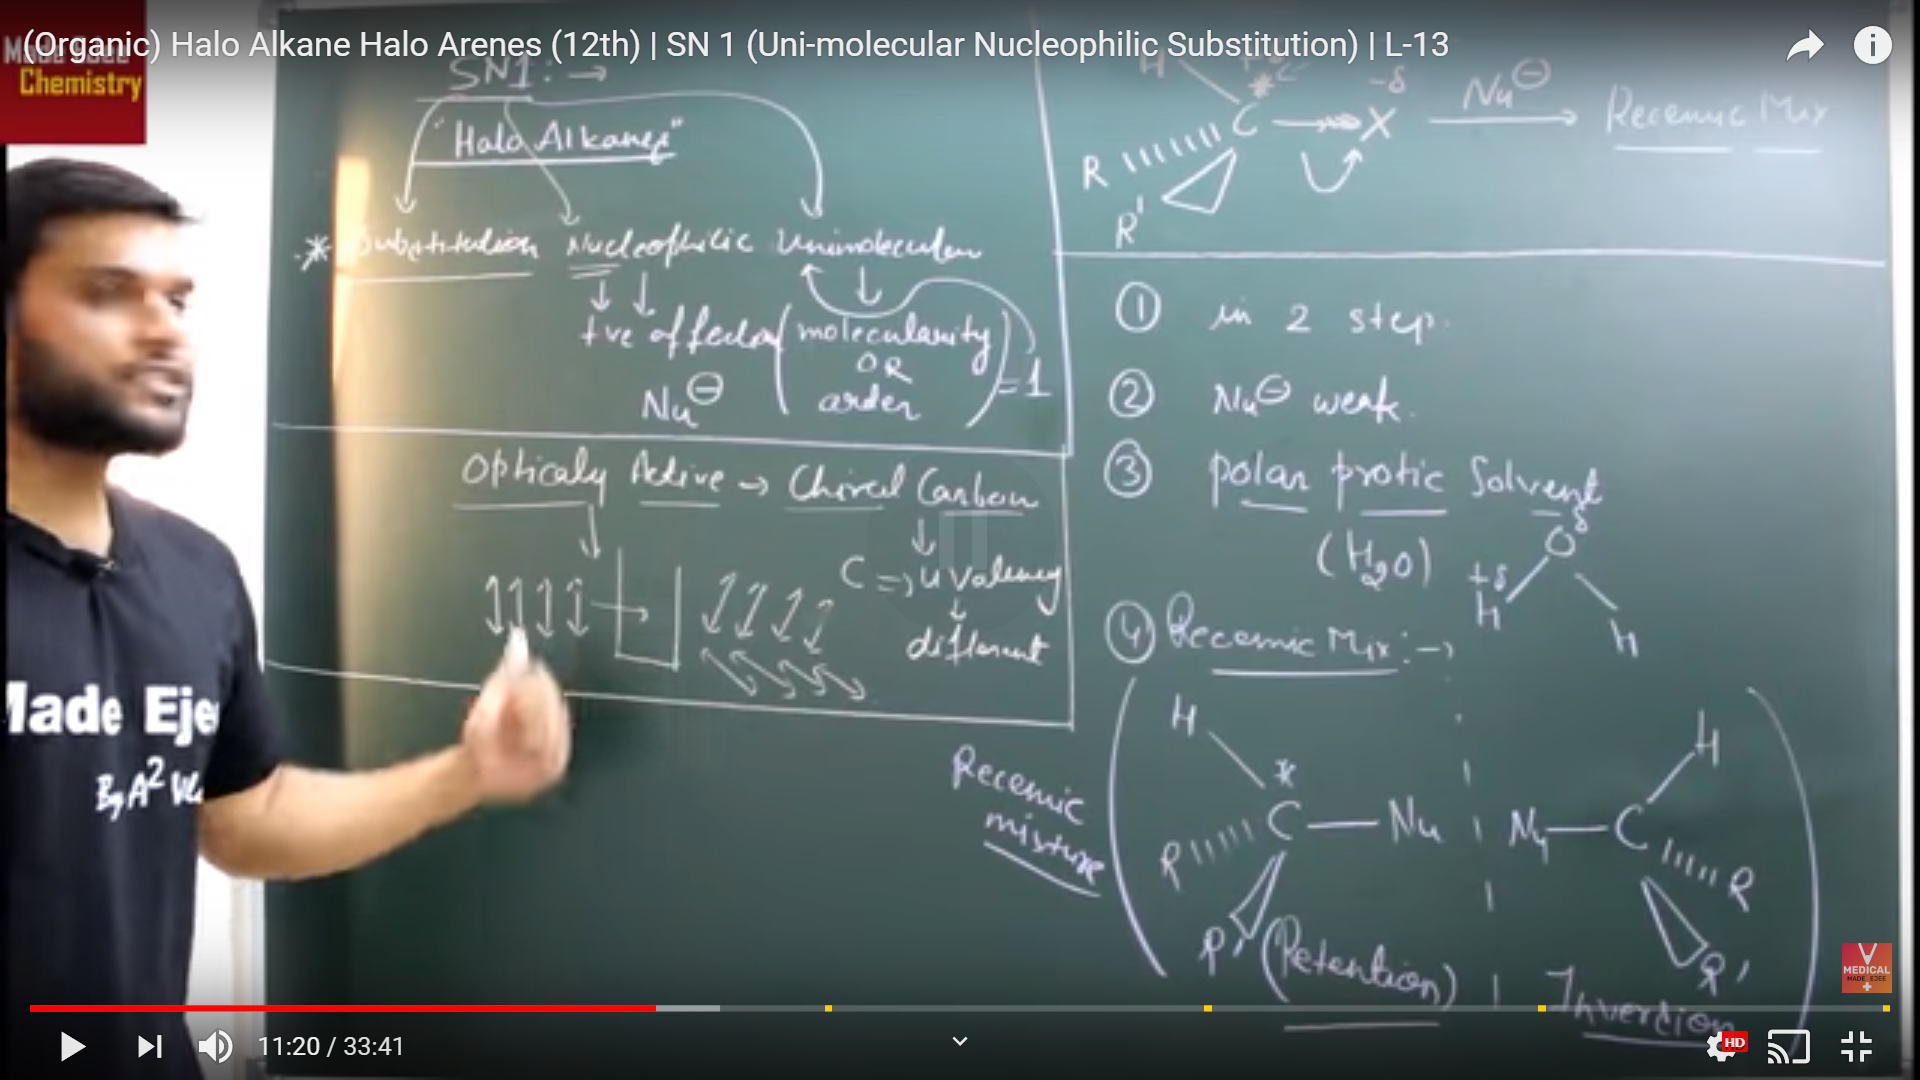 (Organic) Halo Alkane Halo Arenes (12th) | SN 1 (Uni-molecular Nucleophilic Substitution) | L-13
Made Ejee
Chemistry
SN1: →
"Halo Alkanes"
* Substitution Nucleophilic Unimolecular
+ve of fecha (molecularity
OR
order) = 1
Nu⊖
Opticaly Active → Chiral Carbon
C => 4 Valency
different
H
C → X
* -δ
R
R'
Nu⊖
Recemic Mix
① in 2 step.
② Nu⊖ weak.
③ polar protic Solvent
(H2O)
δ
O
+δ
H
H
④ Recemic Mix: →
Recemic
mixture
H
*
R C — Nu
R'
(Retention)
H
Nu — C
R
R'
Inversion
Made Eje
By A²
MEDICAL
MADE EJEE
11:20 / 33:41
HD